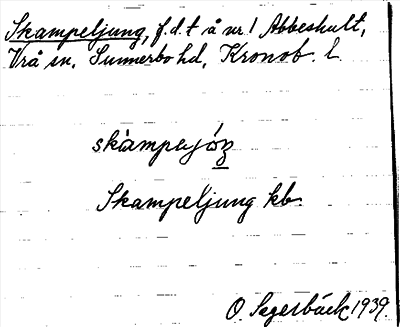 Skampeljung, f.d.t å nr 1 Abbeshult,
Vrå sn, Sunnerbo hd, Kronob. l.
Skampeljung kb.
O. Segerbäck 1939.